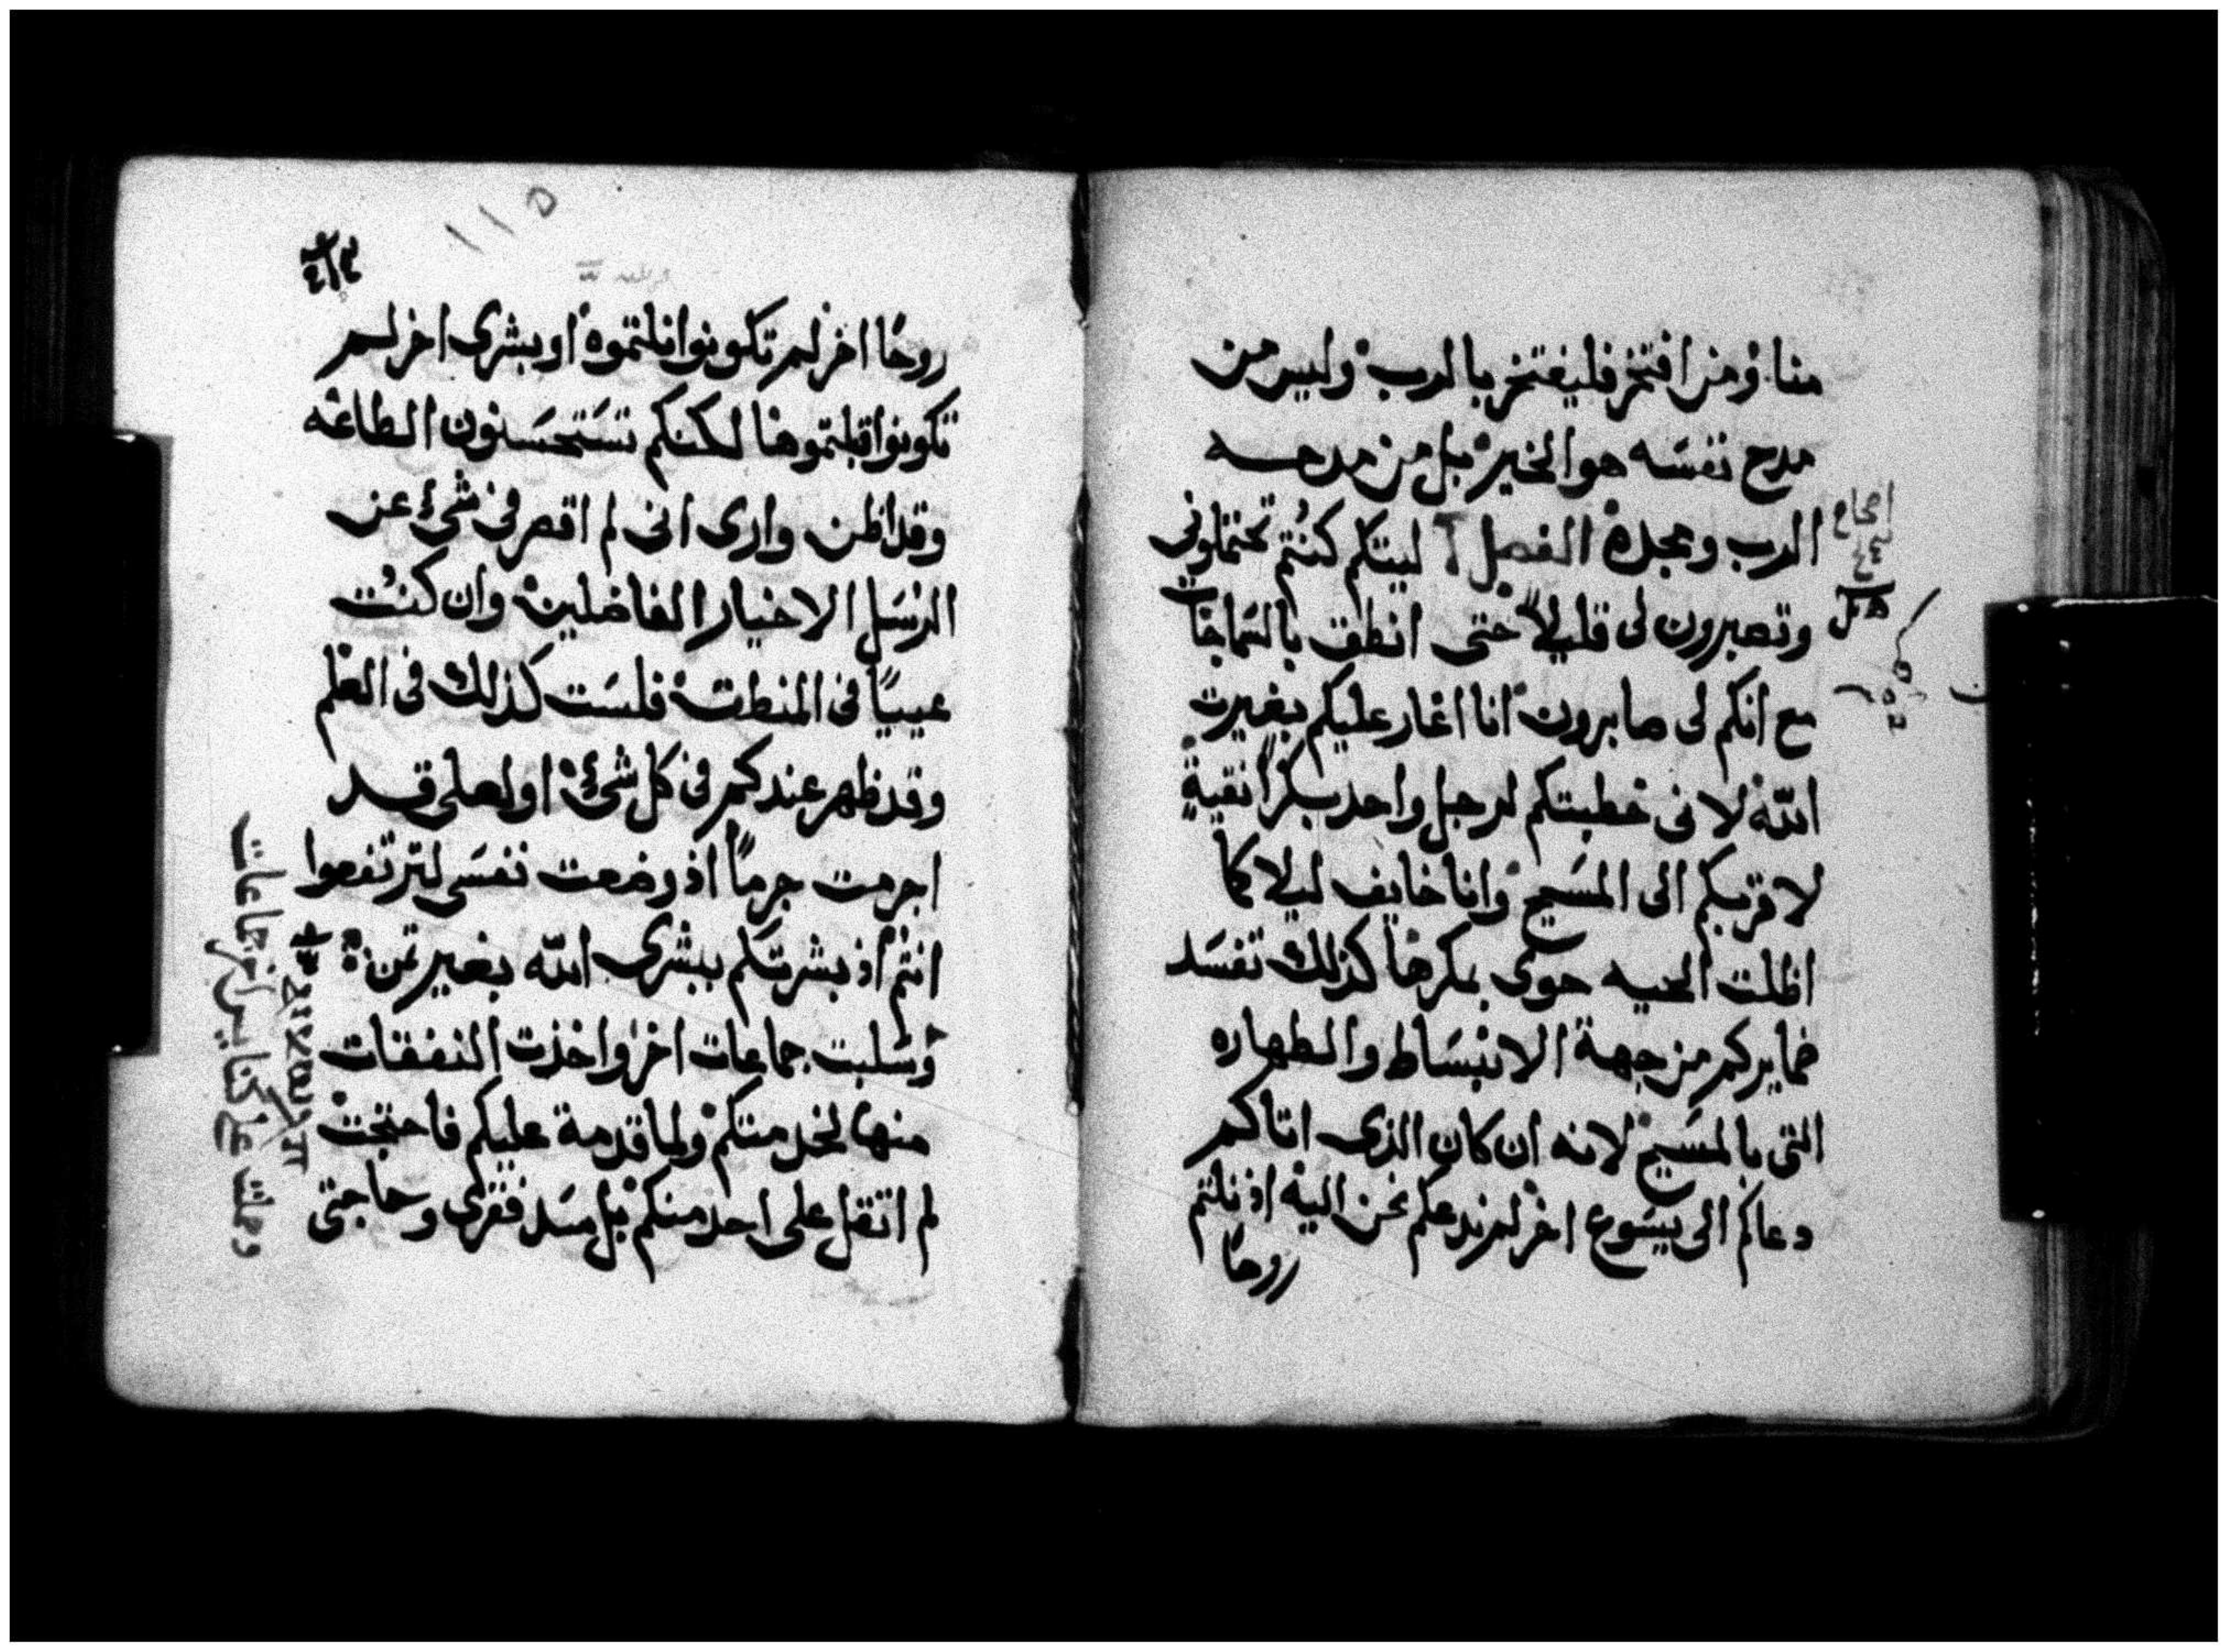 منا ومن افتخر فليفتخر بالرب وليس من
مدح نفسَه هو الخير بل من مدحه
الرب ومجده الفصل ليتكم كنُتم تحتملونى
وتصبرون لى قليلاً حتى انطق بالسَماجات
مع انكم لى صابرون انا اغار عليكم بغيرت
الله لانى خطبتكم لرجل واحد بكراً نقيةٍ
لاقربكم الى المسَيح وانا خايف ليلا كما
اظلت الحيه حوى بمكرها كذلك تفسَد
ضمايركم من جهة الانبسَاط والطهاره
التى بالمسَيح لانه ان كان الذى اتاكم
دعاكم الى يسَوع اخر لم ندعكم نحن اليه اذ نلتم
روحًا
١١٥
روحًا اخر لم تكونوا نلتموه او بشرى اخر لم
تكونوا قبلتموها لكنكم تسَتحسَنون الطاعه
وقد اظن وارى انى لم اقصر فى شىء عن
الرسَل الاخيار الفاضلين وان كنُت
عيياً فى المنطق فلسَت كذلك فى العلم
وقد ظهر عندكم فى كل شىء او لعلى قد
اجرمت جرماً اذ وضعت نفسَى لترتفعوا
انتم اذ بشرتكم ببشرى الله بغير ثمن
وسَلبت جماعات اخر واخذت النفقات
منها لخدمتكم ولما قدمة عليكم فاحتجت
لم اثقل على احد منكم بل سَد فقرى وحاجتى